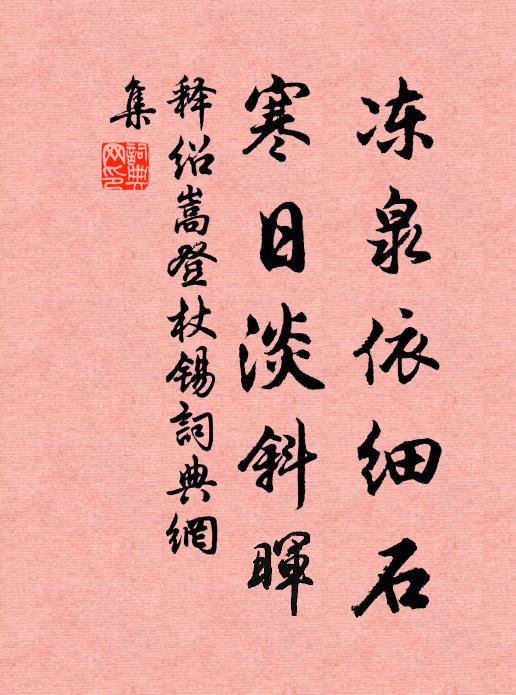 冻泉依细石
寒日淡斜暉
释绍嵩登杖锡詞典網
集
詞典
网印